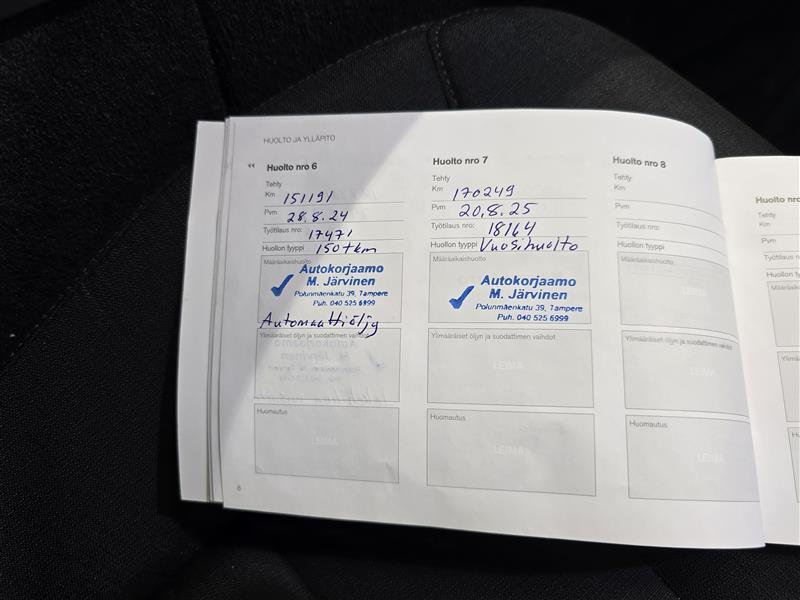 HUOLTO JA YLLÄPITO
Huolto nro 6
Tehty
Km 151191
Pvm 28.8.24
Työtilaus nro: 17471
Huollon tyyppi 150 tkm
Määräaikaishuolto
Autokorjaamo
M. Järvinen
Polunmäenkatu 39, Tampere
Puh. 040 525 6999
Automaattiöljy
Ylimääräiset öljyn ja suodattimen vaihdot
Huomautus
LEIMA
8
Huolto nro 7
Tehty
Km 170249
Pvm 20.8.25
Työtilaus nro: 18164
Huollon tyyppi Vuosihuolto
Määräaikaishuolto
Autokorjaamo
M. Järvinen
Polunmäenkatu 39, Tampere
Puh. 040 525 6999
Ylimääräiset öljyn ja suodattimen vaihdot
LEIMA
Huomautus
LEIMA
Huolto nro 8
Tehty
Km
Pvm
Työtilaus nro:
Huollon tyyppi
Määräaikaishuolto
LEIMA
Ylimääräiset öljyn ja suodattimen vaihdot
LEIMA
Huomautus
LEIMA
Huolto nro
Tehty
Km
Pvm
Työtilaus nro